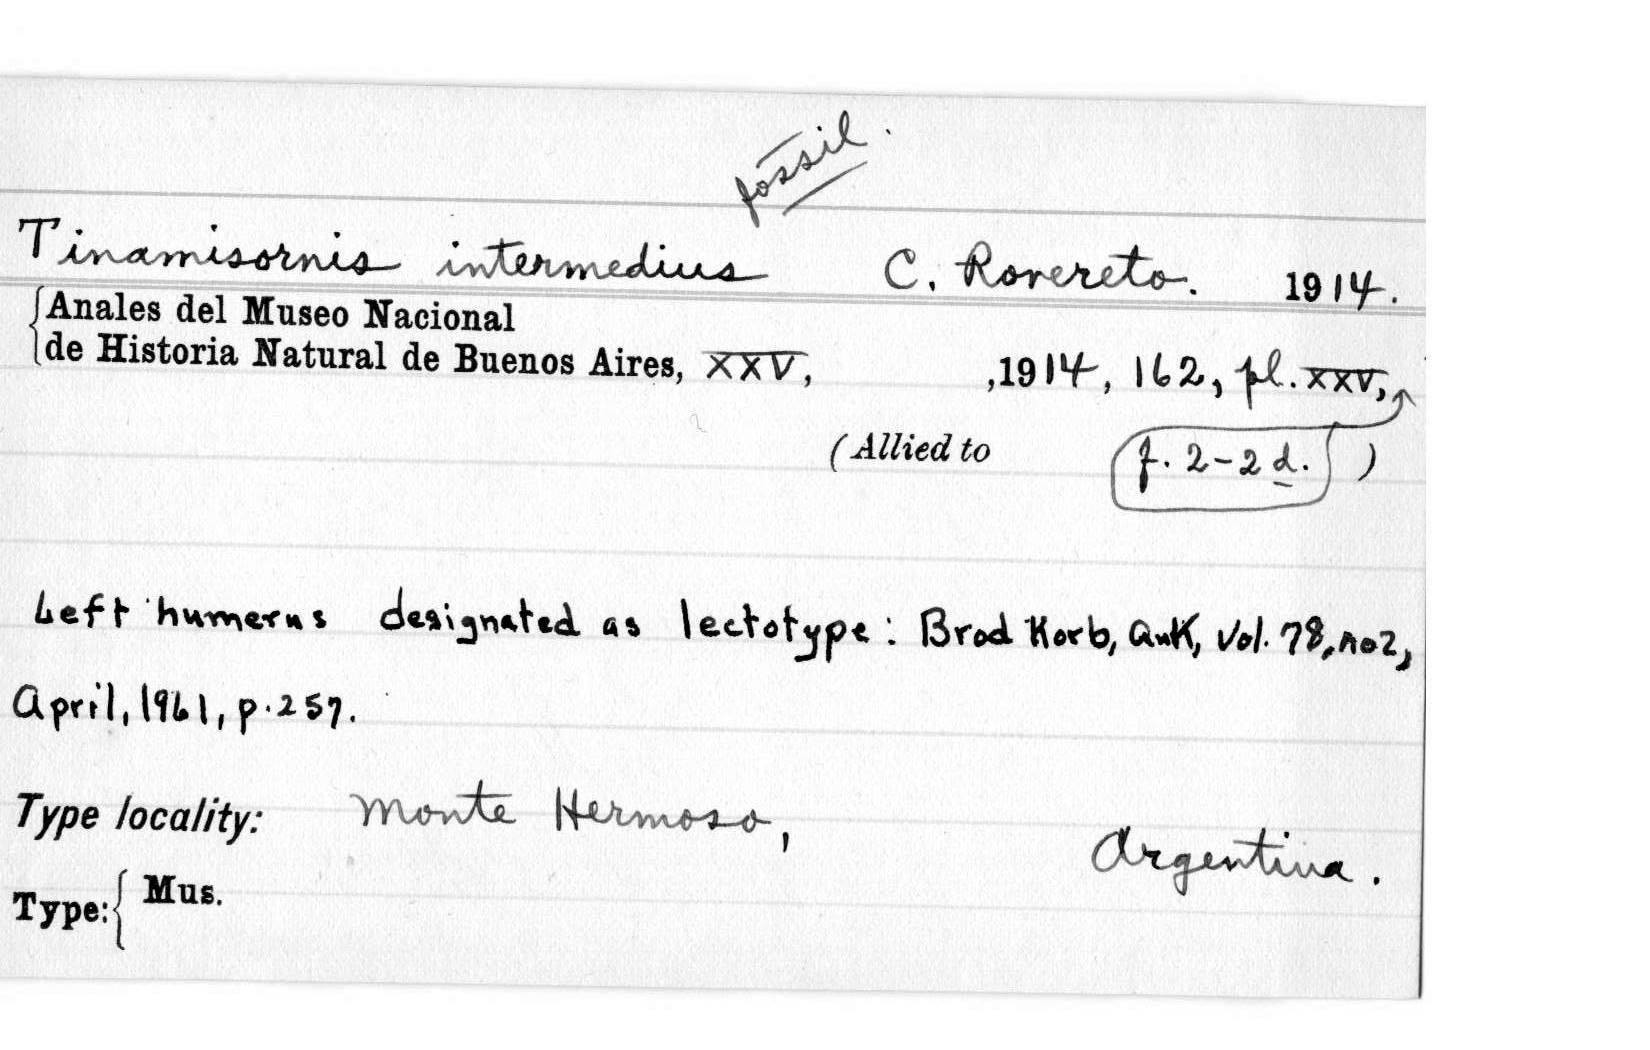 fossil.
Tinamisornis intermedius C. Rovereto. 1914.
Anales del Museo Nacional
de Historia Natural de Buenos Aires, XXV, ,1914, 162, pl. XXV,
(Allied to f. 2-2 d. )
Left humerus designated as lectotype: Brod Korb, Auk, Vol. 78, no 2,
April, 1961, p. 257.
Type locality: Monte Hermoso,
Argentina.
Type: Mus.